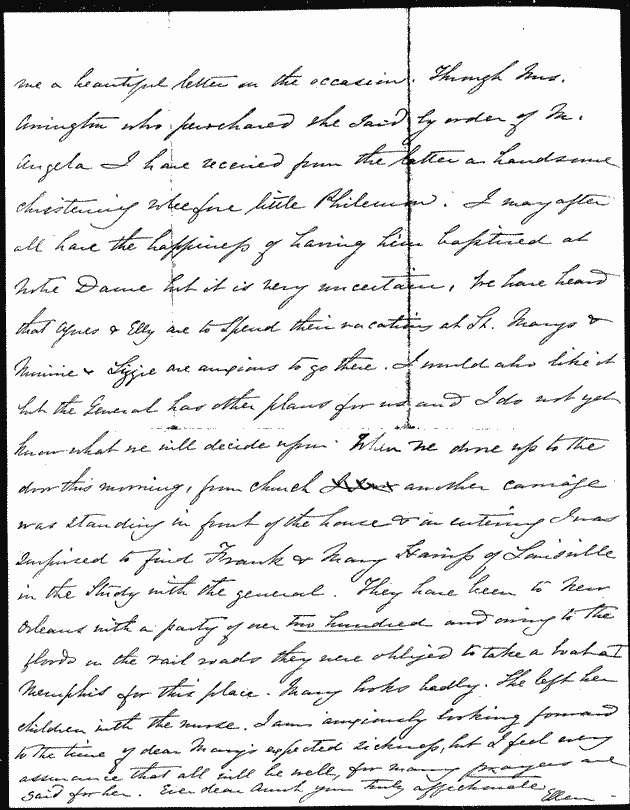 me a beautiful letter on the occasion. Through Mrs.
Arrington who purchased she said by order of M.
Angela I have received from the latter a handsome
christening robe for little Philemon. I may after
all have the happiness of having him baptized at
Notre Dame but it is very uncertain, We have heard
that Agnes & Elly are to spend their vacations at St. Marys &
Minnie & Lizzie are anxious to go there. I would also like it
but the General has other plans for us and I do not yet
know what we will decide upon. When we drove up to the
door this morning, from church another carriage
was standing in front of the house & on entering I was
surprised to find Frank & Mary of Louisville
in the Study with the general. They have been to New
Orleans with a party of over two hundred and owing to the
floods on the rail roads they were obliged to take a boat at
Memphis for this place. Mary looks badly. She left her
children with the nurse. I am anxiously looking forward
to the time of dear Mary's expected sickness, but I feel every
assurance that all will be well, for many prayers are
said for her. Ever dear Aunt your truly affectionate
Ellen